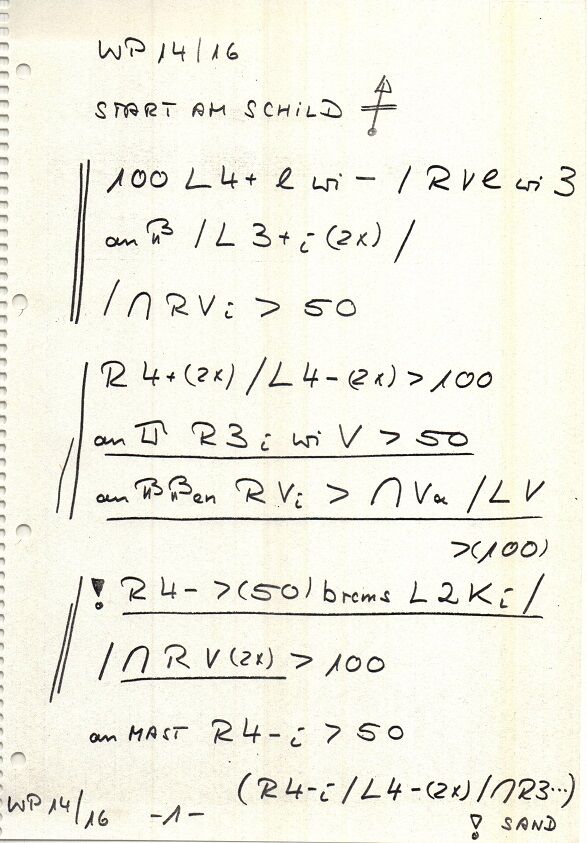 WP 14/16
START AM SCHILD
100 L4+ l wi - / RVl wi 3
an / L 3+i (2x) /
/ ∩ RVi > 50
R 4+(2x) / L4-(2x) > 100
an R3i wi V > 50
an en RVi > ∩ Va / LV
>(100)
! R4- >(50) brems L2Ki /
/ ∩ R V(2x) > 100
an MAST R4-i > 50
(R4-i / L4-(2x) / ∩R3...)
! SAND
WP 14/16 -1-